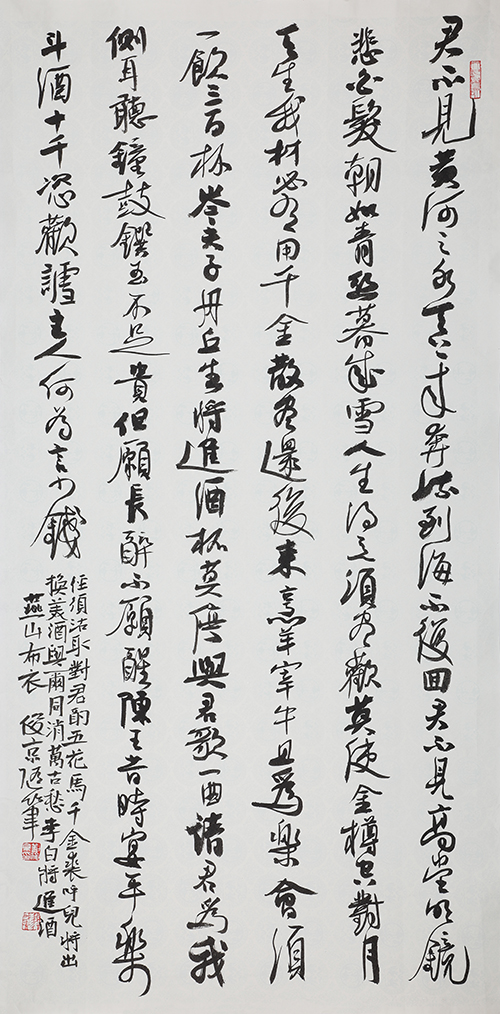 君不見黄河之水天上来奔流到海不復回君不見高堂明鏡
悲白髮朝如青絲暮成雪人生得意須盡歡莫使金樽空對月
天生我材必有用千金散盡還復来烹羊宰牛且爲樂會須
一飲三百杯岑夫子丹丘生將進酒杯莫停與君歌一曲請君爲我
側耳聽鐘鼓饌玉不足貴但願長醉不願醒陳王昔時宴平樂
斗酒十千恣歡謔主人何為言少錢
徑須沽取對君酌五花馬千金裘呼兒將出
換美酒與爾同消萬古愁李白將進酒
燕山布衣俊京隨筆